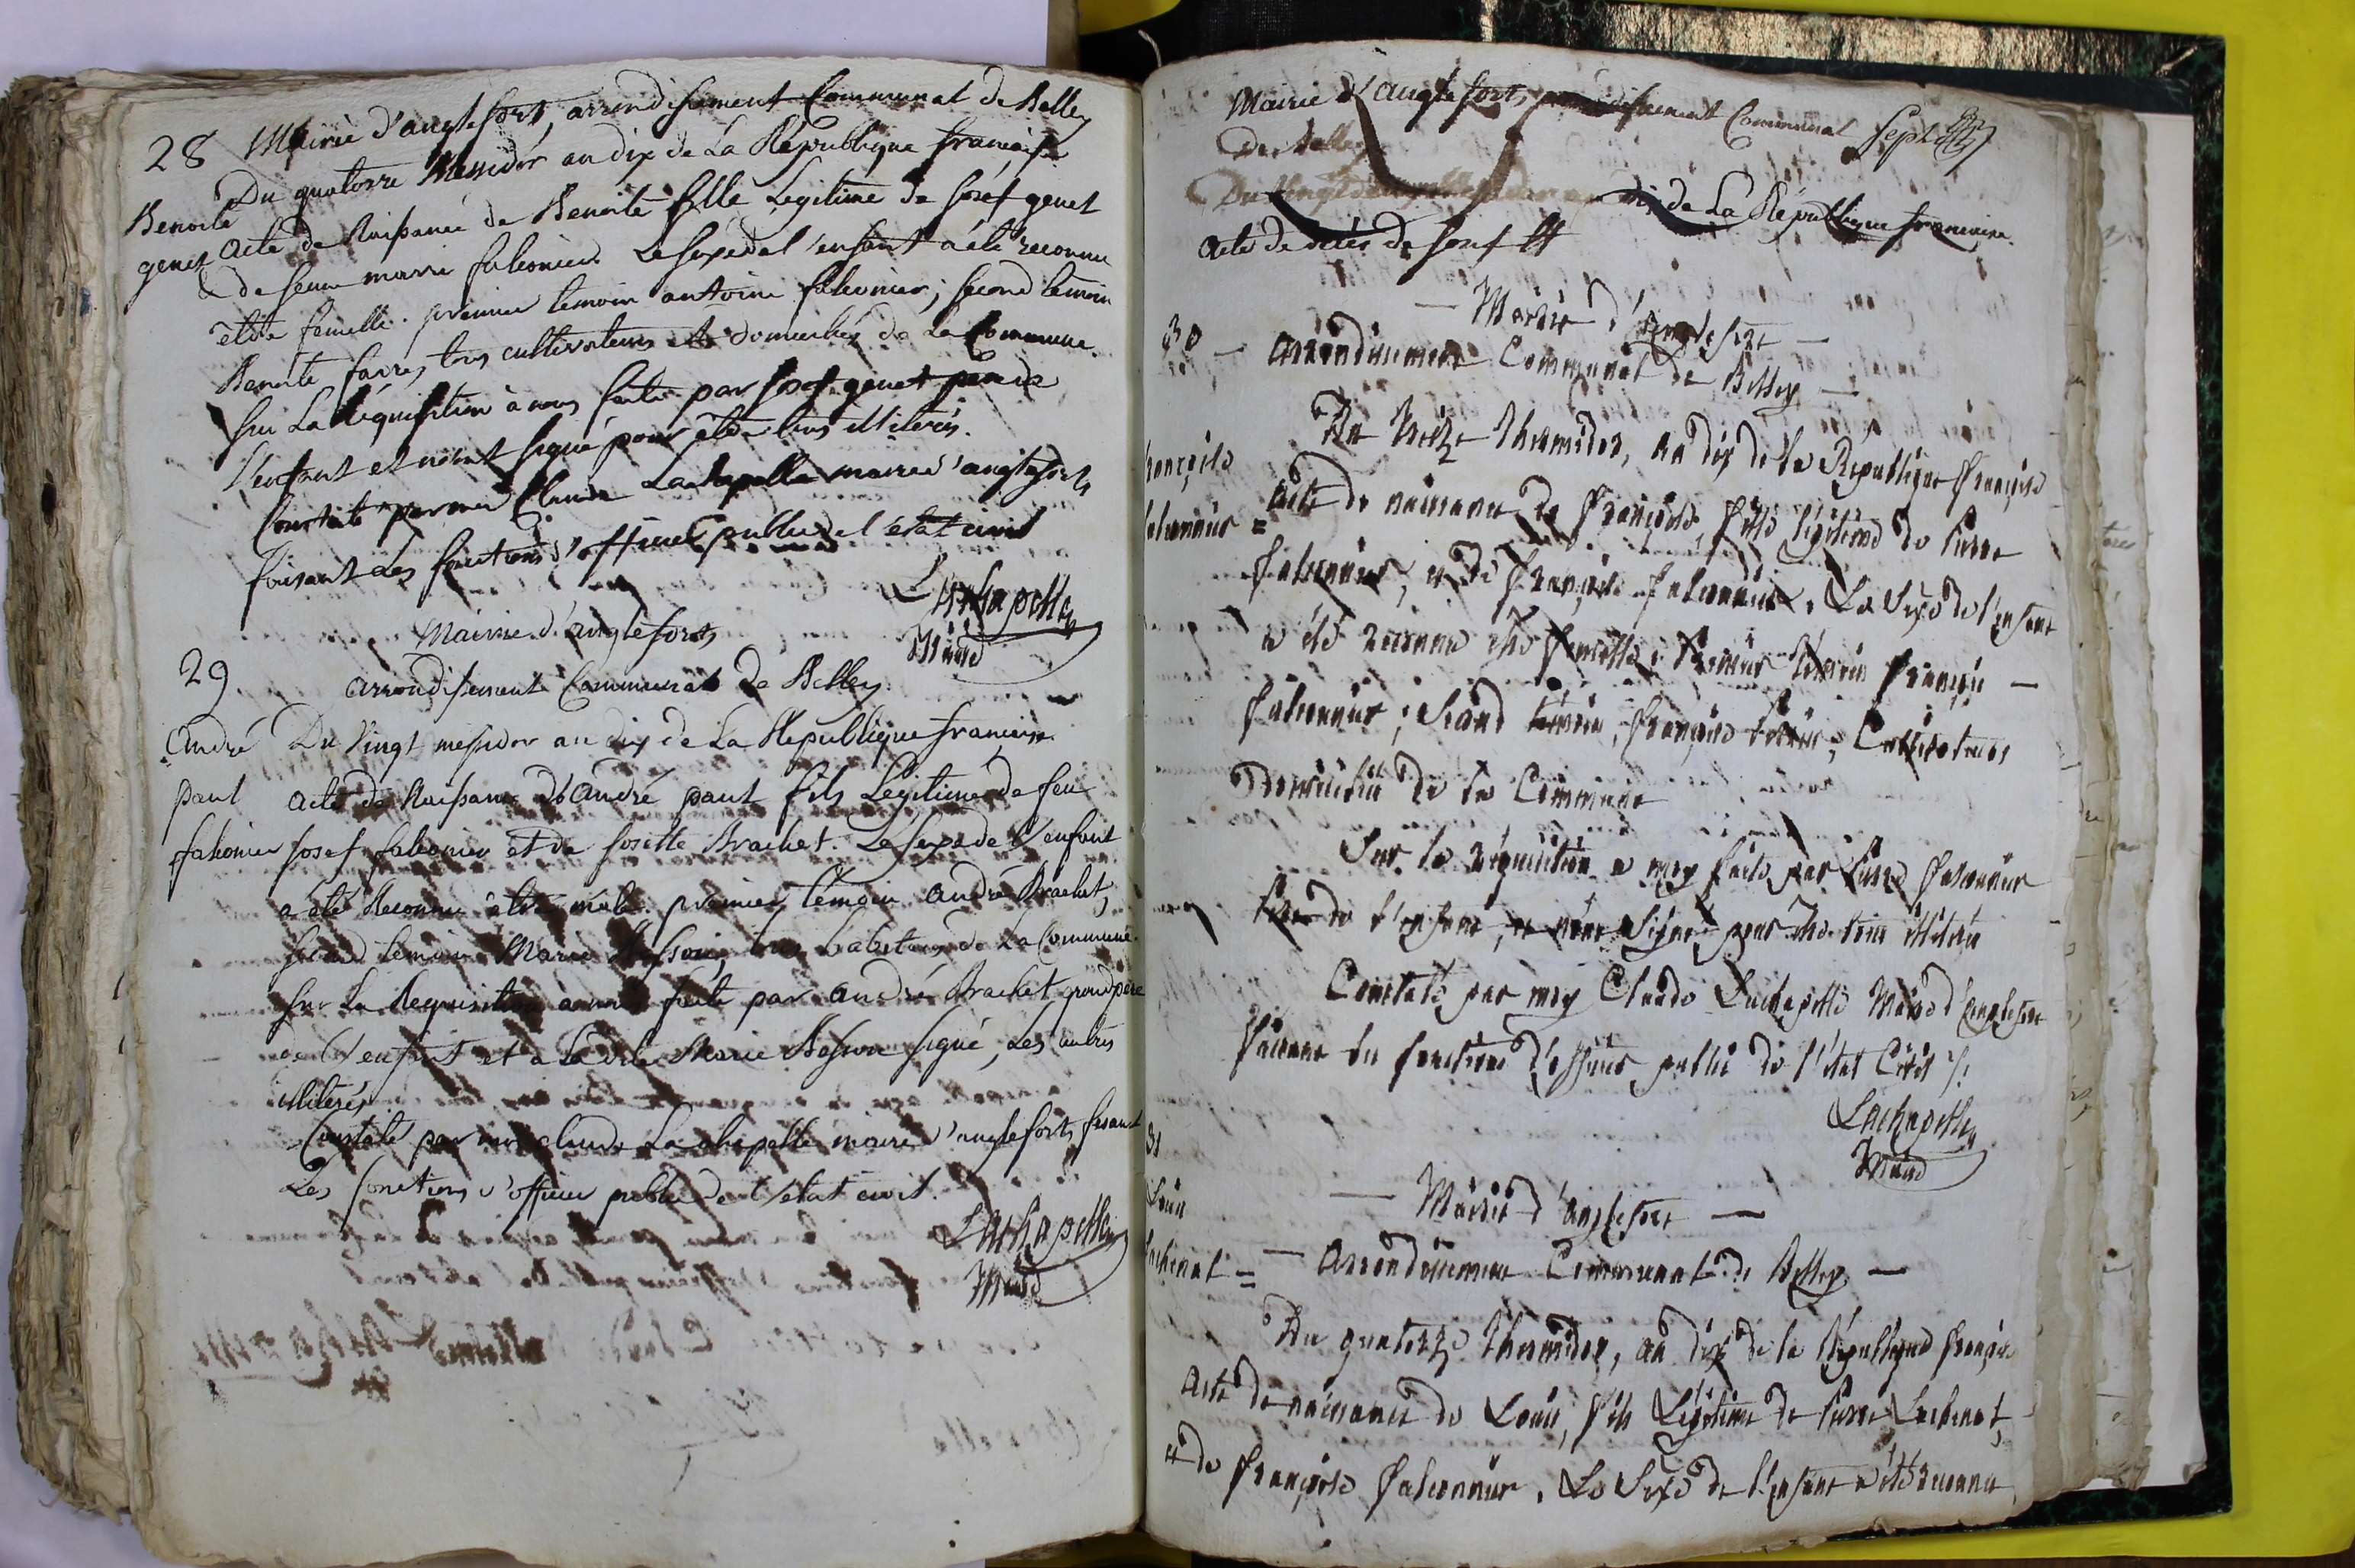 28 Mairie d'anglefort, arrondissement Communal de Belley
Du quatorze Messidor an dix de La République francaise
Benoite
genet
acte de Naissance de Benoite fille Legitime de Josef genet
& de feue marie falconier. Le sexe de l'enfant a été reconnu
être femelle. premier temoin antoine falconier; second temoin
Benoite favre, tous cultivateurs et domiciliés de La Commune.
sur La Réquisition à nous faite par Josef genet pere de
l'enfant et n'ont signé pour être tous illiterés.
Constaté par moi Claude Lachapelle maire d'anglefort
faisant Les fonctions d'officier public de l'état civil
Lachapelle
Maire
Mairie d'anglefort
29
arrondissement Communal de Belley
Du Vingt messidor an dix de La République francaise
André
paul
falconier
acte de Naissance d'andré paul fils Legitime de feu
Josef falconier et de Josette Brachet. Le sexe de l'enfant
a été Reconnu être mâle. premier témoin andré Brachet,
second temoin Marie Besson, tous habitans de La Commune.
sur La Requisition a nous faite par andré Brachet grand père
de l'enfant et a La dite Marie Besson signé, Les autres
illiterés
Constaté par moi claude Lachapelle maire d'anglefort, fesant
Les fonctions d'officier public de l'état civil.
Lachapelle
Maire
Mairie d'anglefort, Communal
Sept
de Belley
Du Vingt dix de La République francaise
acte de décés de
— Mairie d'Anglefort —
30 — Arrondissement Communal de Belley —
Du treize thermidor, an dix de la République française
françoise
falconnier =
Acte de naissance de françoise, fille légitime de pierre
falconnier, et de françoise falconnier. Le Sexe de l'enfant
a été reconnu être femelle; Premier témoin françois —
falconnier; second témoin, françois Cultivateurs
Domiciliés de la Commune
Sur la réquisition a moy faite par pierre falconnier
père de l'enfant, et n'ont signé pour être tous illitérés
Constaté par moy Claude Lachapelle Maire d'anglefort
faisant les fonctions d'officier public de l'état Civil /:
Lachapelle
Maire
31
— Mairie d'anglefort —
Louis
Lachenal =
— Arrondissement Communal de Belley —
Du quatorze thermidor, an dix de la République française
Acte de naissance de Louis, fils Légitime de pierre Lachenal,
et de françoise falconnier. Le Sexe de l'enfant a été reconnu